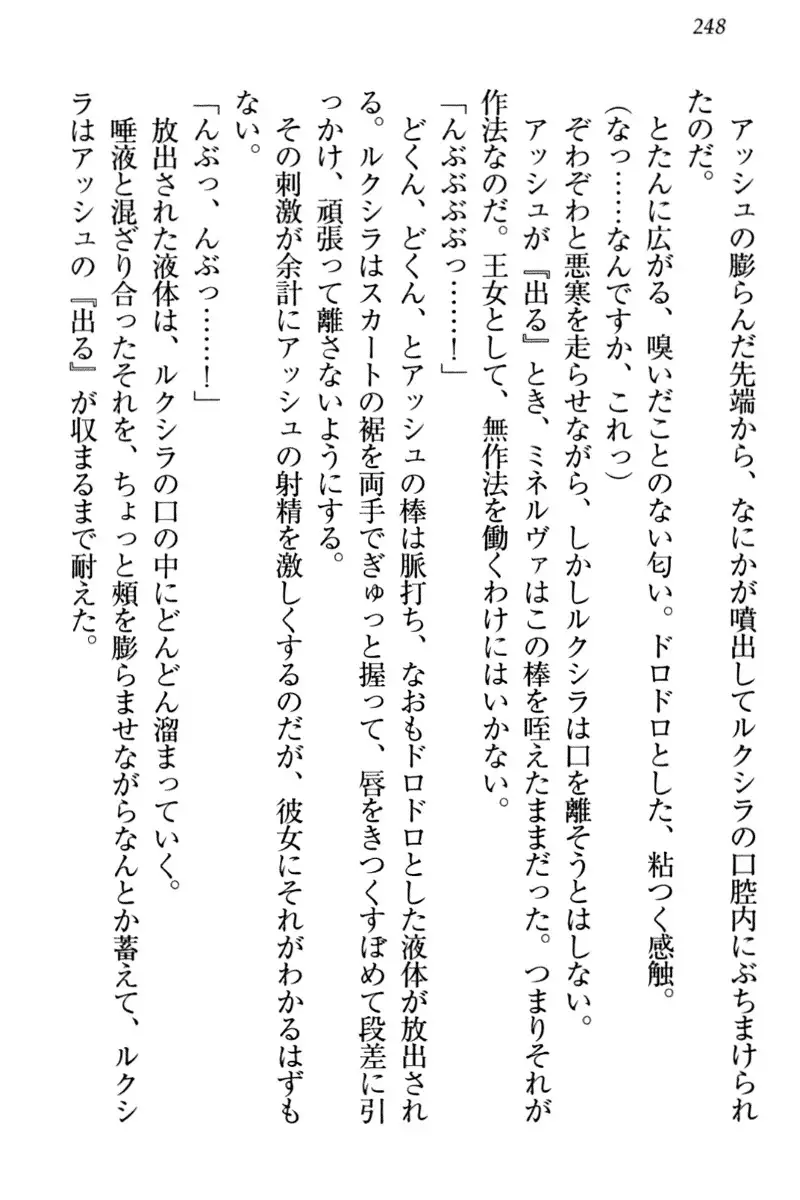 248
アッシュの膨らんだ先端から、なにかが噴出してルクシラの口腔内にぶちまけられ
たのだ。
とたんに広がる、嗅いだことのない匂い。ドロドロとした、粘つく感触。
(なっ……なんですか、これっ)
ぞわぞわと悪寒を走らせながら、しかしルクシラは口を離そうとはしない。
アッシュが『出る』とき、ミネルヴァはこの棒を咥えたままだった。つまりそれが
作法なのだ。王女として、無作法を働くわけにはいかない。
「んぶぶぶぶっ……！」
どくん、どくん、とアッシュの棒は脈打ち、なおもドロドロとした液体が放出され
る。ルクシラはスカートの裾を両手でぎゅっと握って、唇をきつくすぼめて段差に引
っかけ、頑張って離さないようにする。
その刺激が余計にアッシュの射精を激しくするのだが、彼女にそれがわかるはずも
ない。
「んぶっ、んぶっ……！」
放出された液体は、ルクシラの口の中にどんどん溜まっていく。
唾液と混ざり合ったそれを、ちょっと頬を膨らませながらなんとか蓄えて、ルクシ
ラはアッシュの『出る』が収まるまで耐えた。